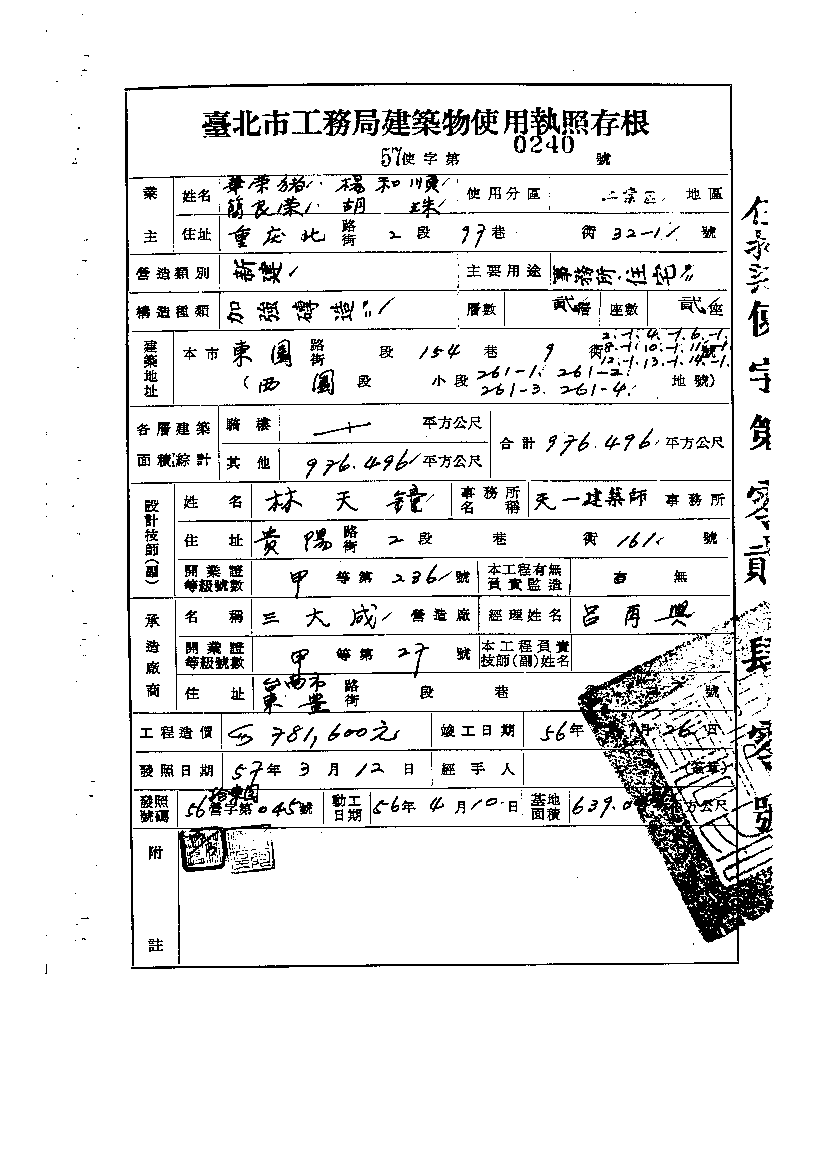 臺北市工務局建築物使用執照存根
57使字第 0240 號
業主 姓名 楊和順 簡良榮 胡珠 使用分區 地區
住址 重庆北 路街 2 段 97 巷 街 32-1 號
營造類別 新建 主要用途 事務所.住宅
構造種類 加強磚造 層數 貳層 座數 貳座
建築地址 本市 東園 路街 段 154 巷 9 街 號
2.-1.4.-1.6.-1.
8.-1.10.-1.11.-1.
12.-1.13.-1.14.-1.
(西園 段 小段 261-1. 261-2. 261-3. 261-4. 地號)
各層建築面積綜計 騎樓 平方公尺
其他 976.496 平方公尺 合計 976.496 平方公尺
設計技師(副) 姓名 林天鐘 事務所名稱 天一建築師 事務所
住址 貴陽 路街 2 段 巷 街 161 號
開業證等級號數 甲 等第 236 號 本工程有無負責監造 有 無
承造廠商 名稱 三大成 營造廠 經理姓名 呂再興
開業證等級號數 甲 等第 27 號 本工程負責技師(副)姓名
住址 台南市東豊 路街 段 巷 號
工程造價 781,600元 竣工日期 56年 月 26 日
發照日期 57年 3 月 12 日 經手人 (蓋章)
發照號碼 56 營字第 045 號 動工日期 56年 4 月 10 日 基地面積 639.0 平方公尺
附註
使字第零貳肆零號